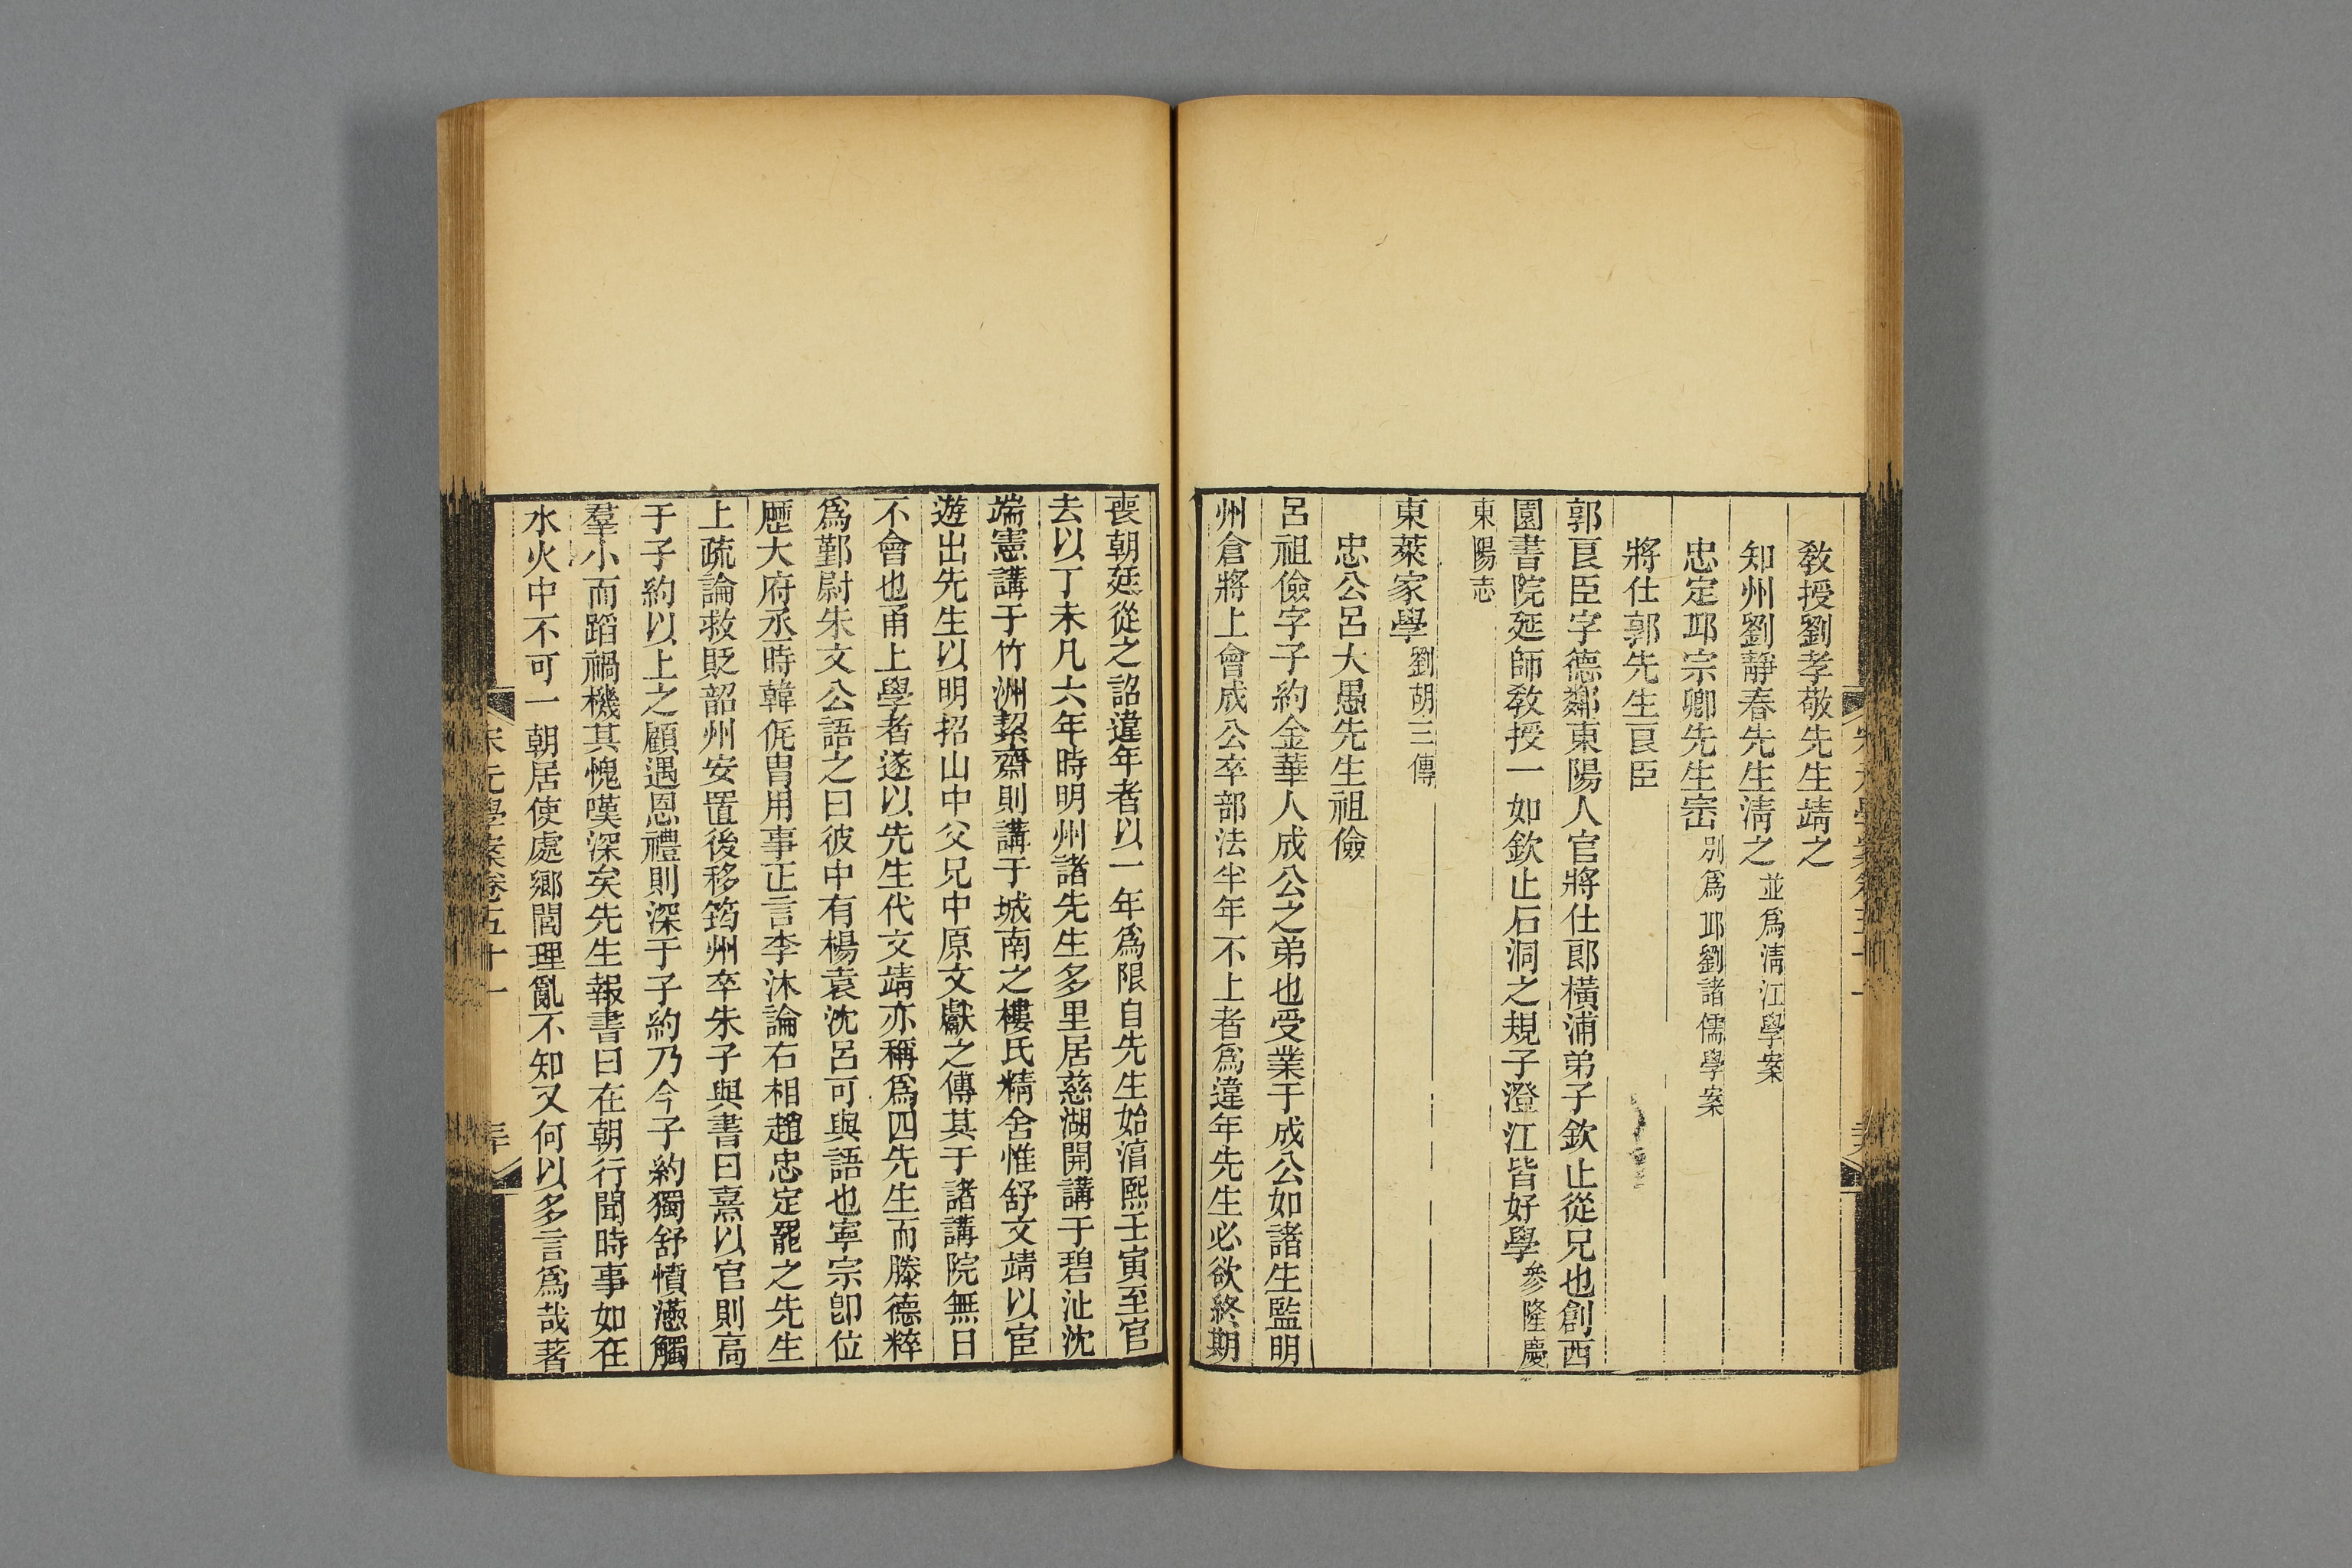 教授劉孝敬先生靖之
知州劉靜春先生淸之並爲淸江學案
忠定邱宗卿先生崈別爲邱劉諸儒學案
將仕郭先生良臣
郭良臣字德鄰東陽人官將仕郎橫浦弟子欽止從兄也創西
園書院延師教授一如欽止石洞之規子澄江皆好學參隆慶
東陽志
東萊家學劉胡三傳
忠公呂大愚先生祖儉
呂祖儉字子約金華人成公之弟也受業于成公如諸生監明
州倉將上會成公卒部法半年不上者爲違年先生必欲終期
喪朝廷從之詔違年者以一年爲限自先生始淯熙壬寅至官
去以丁未凡六年時明州諸先生多里居慈湖開講于碧沚沈
端憲講于竹洲絜齋則講于城南之樓氏精舍惟舒文靖以宦
遊出先生以明招山中父兄中原文獻之傳其于諸講院無日
不會也甬上學者遂以先生代文靖亦稱爲四先生而滕德粹
爲鄞尉朱文公語之曰彼中有楊袁沈呂可與語也寧宗卽位
歷大府丞時韓侂冑用事正言李沐論右相趙忠定罷之先生
上疏論救貶韶州安置後移筠州卒朱子與書曰熹以官則高
于子約以上之顧遇恩禮則深于子約乃今子約獨舒憤懣觸
羣小而蹈禍機其愧嘆深矣先生報書曰在朝行聞時事如在
水火中不可一朝居使處鄉閭理亂不知又何以多言爲哉著
宋元學案卷五十一